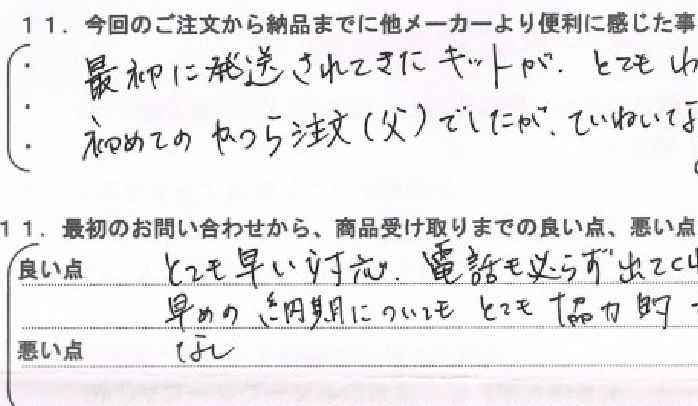 11．今回のご注文から納品までに他メーカーより便利に感じた事
・最初に発送されてきたキットが、とてもわ
・
・初めてのかつら注文(父)でしたが、ていねいな
11．最初のお問い合わせから、商品受け取りまでの良い点、悪い点
良い点 とても早い対応。電話も必らず出てく
早めの納期についても とても協力的
悪い点 なし